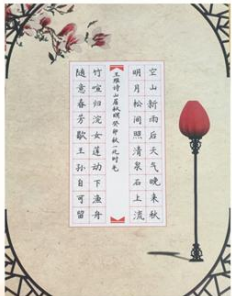 空山新雨后天气晚来秋
明月松间照清泉石上流
王维诗山居秋暝癸卯秋
竹喧归浣女莲动下渔舟
随意春芳歇王孙自可留